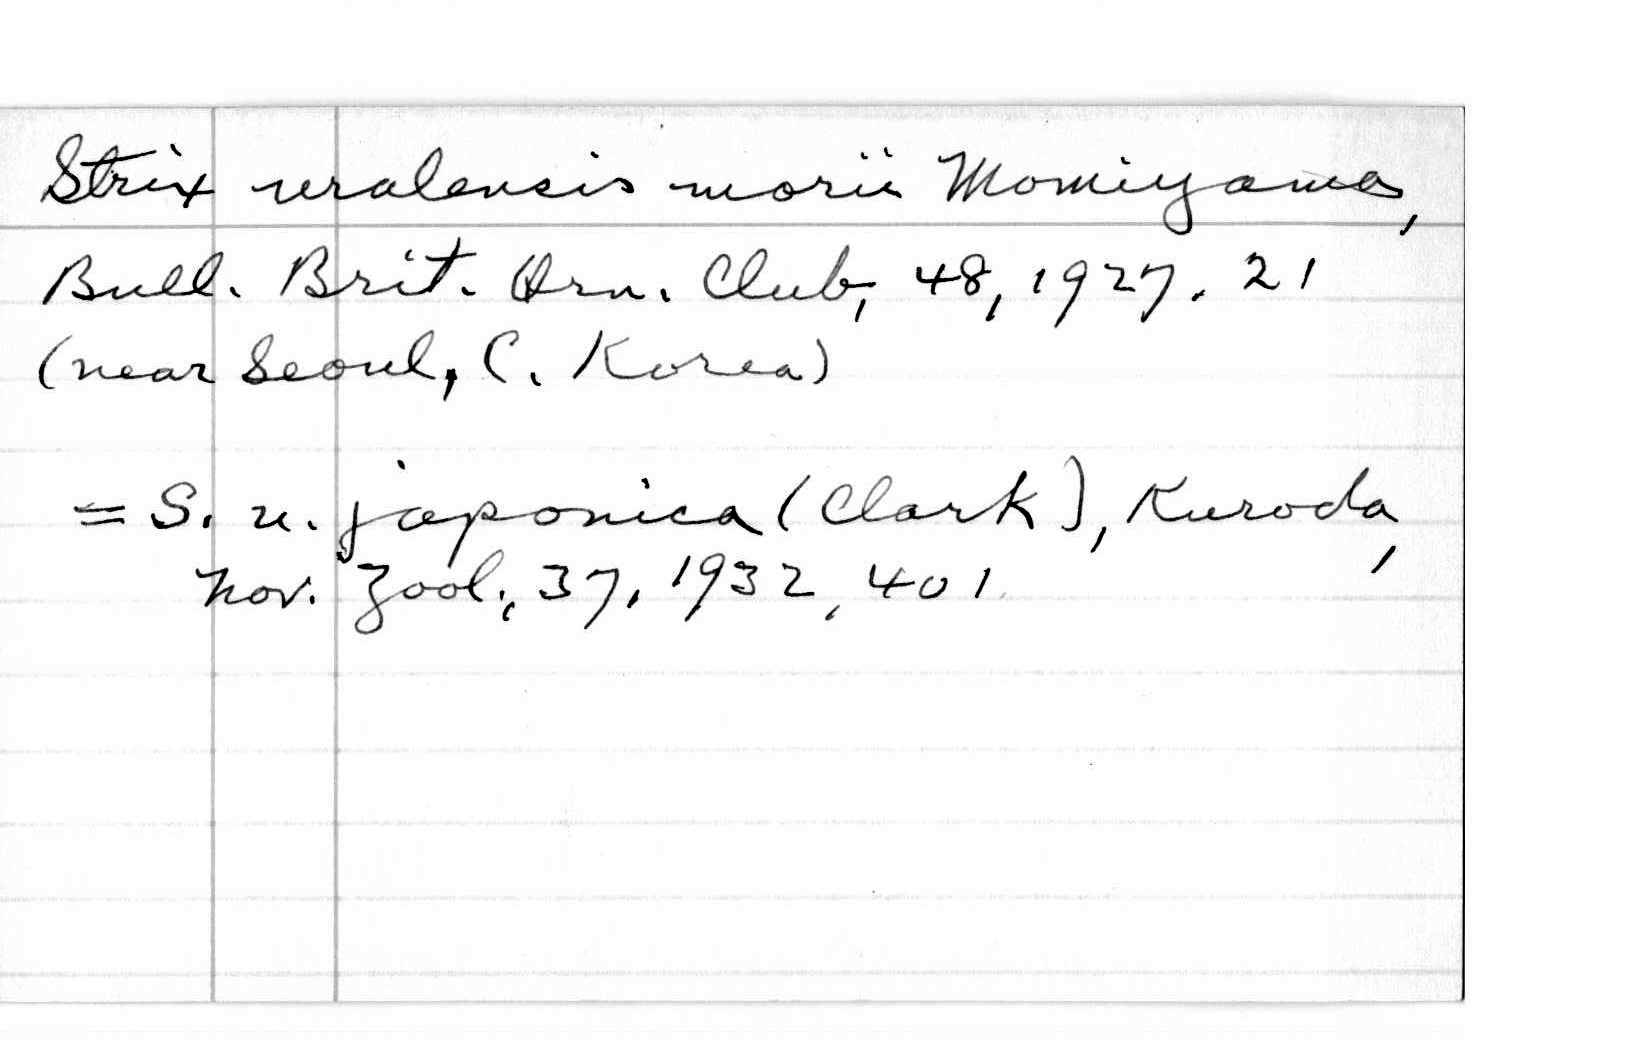 Strix uralensis morii Momiyama,
Bull. Brit. Orn. Club, 48, 1927. 21
(near Seoul, C. Korea)
= S. u. japonica (Clark), Kuroda,
Nov. Zool., 37, 1932, 401